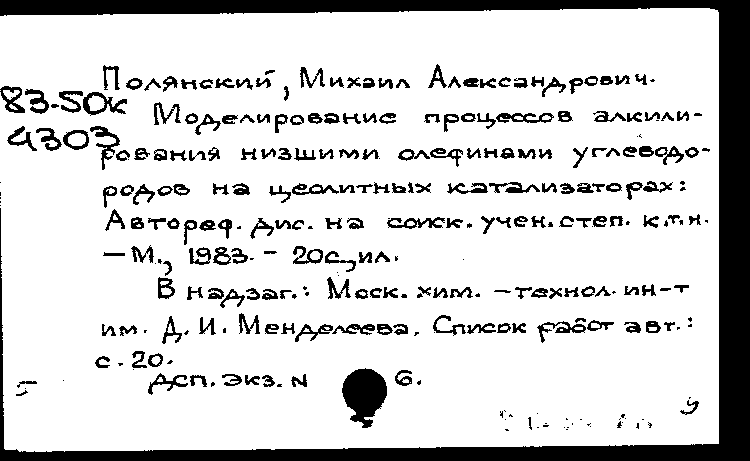 Полянский, Михаил Александрович.
83-50к
4303
Моделирование процессов алкили-
рования низшими олефинами углеводо-
родов на цеолитных катализаторах:
Автореф. дис. на соиск. учен. степ. к.т.н.
— М., 1983. - 20с., ил.
В надзаг.: Моск. хим. - технол. ин-т
им. Д. И. Менделеева. Список работ авт.:
с. 20.
ДСП. экз. N 6.